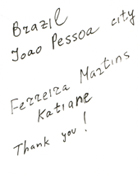 Brazil
Joao Pessoa city
Ferreira Martins
Katiane
Thank you!